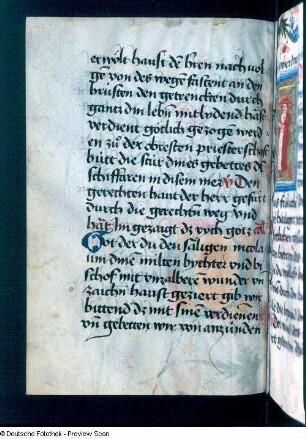 erwölt haust dē hren nach uol
gē von des wegē fastent an den
brüsten den getrenckten durch
gantz din lebn mitlydend hast
verdient götlich gezogen werd
en zů der obresten priesterschaft
bitt die stür dines gebettes dē
schiffaren in disem mer V Den
gerechten haut der herr gefürt
durch die gerechtē weg vnd
hāt im gezaigt dz rych gotz coll
Got der du den säligen nicola
um dinē milten bychter vnd bi
schof mit vnzalberē wunder vn
zaichn haust geziert gib wir
bittend dz mit sinē verdienen
vn gebetten wir von anzünden
©Deutsche Fotothek - Preview Scan